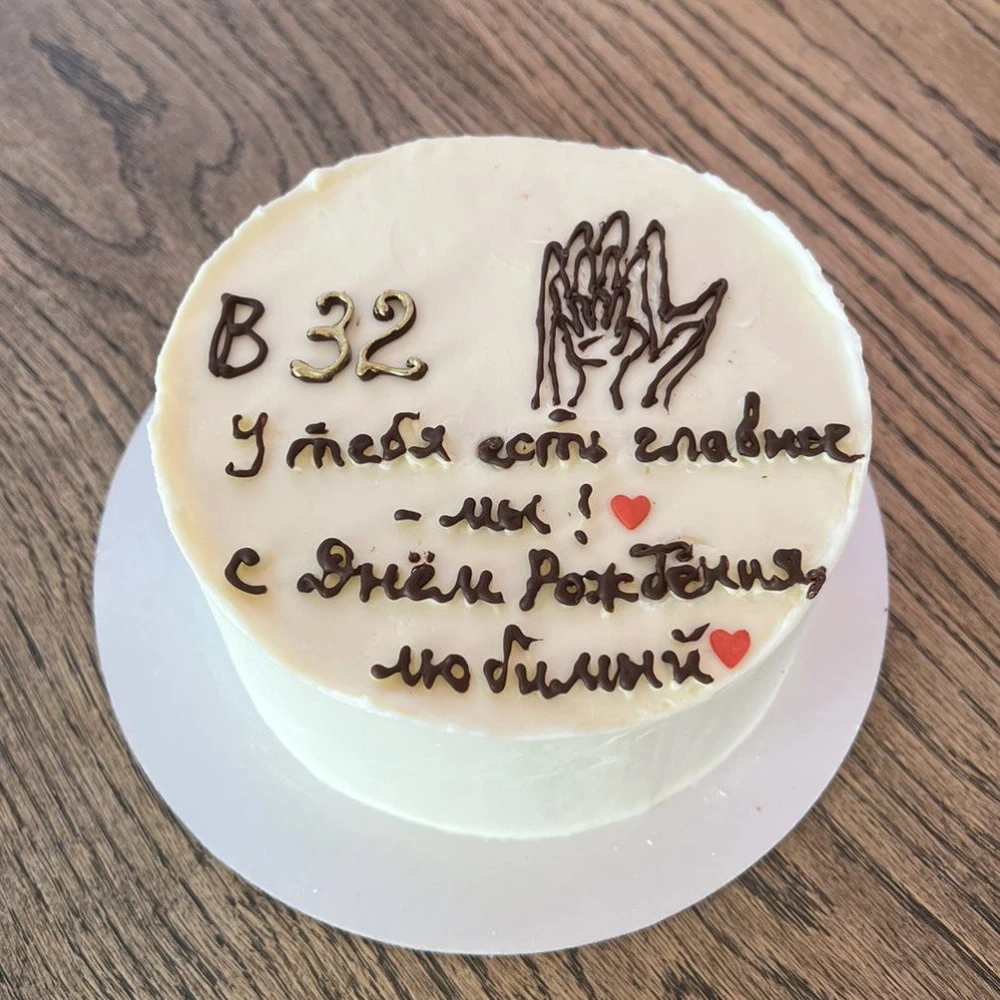 В 32
У тебя есть главное
- мы!
с Днём Рождения,
любимый